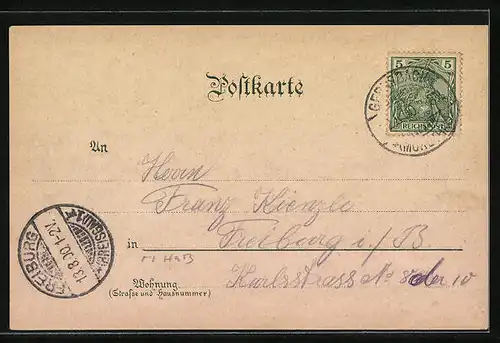 5 5
REICHSPOST
Postkarte
An
Herrn
Franz Kienzle
in Freiburg i/B
FREIBURG
13.8.00.1-2N.
(BREISGAU)
Wohnung
(Straße und Hausnummer)
Karlsstrasse No 8 oder 10